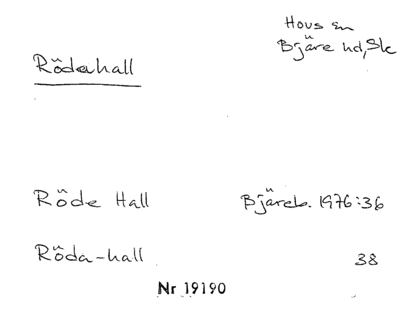 Hovs sn
Bjäre hd, Sk
Rödahall
Röde Hall Bjäreb. 1976:36
Röda-hall 38
Nr 19190